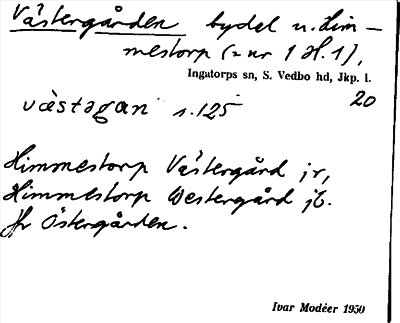 Västergården bydel u. Him–
mestorp (= nr 1 H. 1),
Ingatorps sn, S. Vedbo hd, Jkp. l.
20
væ̀stəgɑn s. 125
Himmestorp Västergård jr,
Himmestorp Westergård jb.
Jfr Östergården.
Ivar Modéer 1950